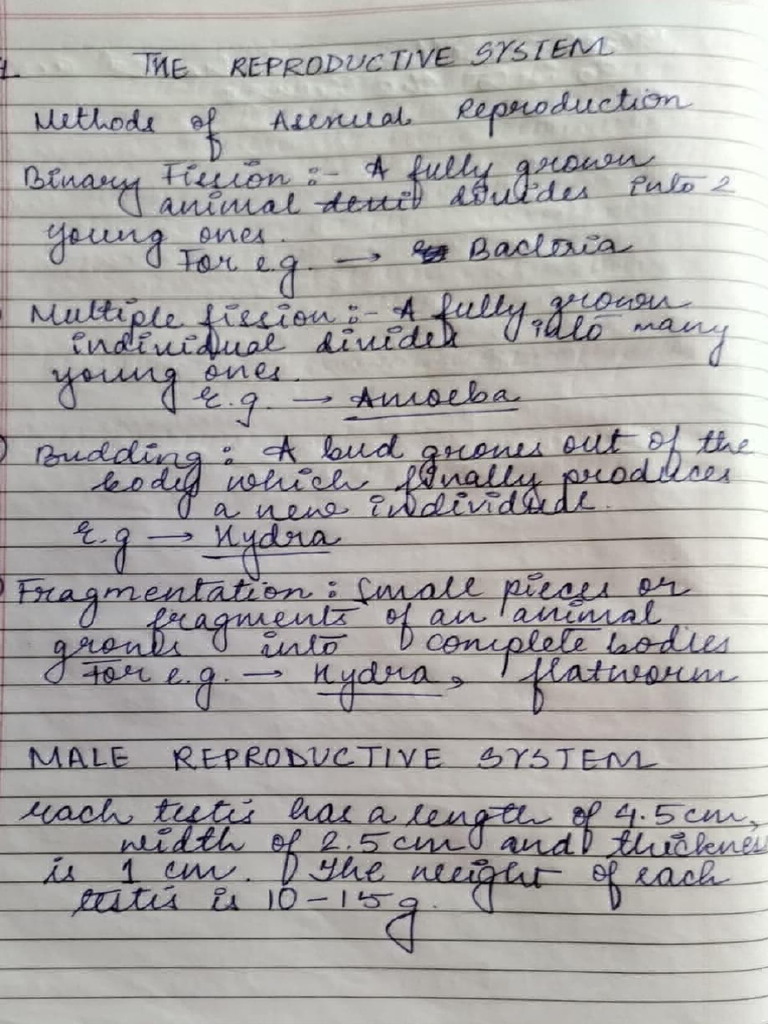 THE REPRODUCTIVE SYSTEM
Methods of Asexual Reproduction
Binary Fission :- A fully grown
animal divides into 2
young ones.
For e.g. → Bacteria
Multiple fission :- A fully grown
individual divides into many
young ones.
E.g. → Amoeba
Budding : A bud grows out of the
body which finally produces
a new individual.
E.g → Hydra
Fragmentation : Small pieces or
fragments of an animal
grows into complete bodies
For e.g. → Hydra, flatworm
MALE REPRODUCTIVE SYSTEM
Each testis has a length of 4.5cm,
width of 2.5cm and thicknes
is 1 cm. The weight of each
testis is 10-15g.